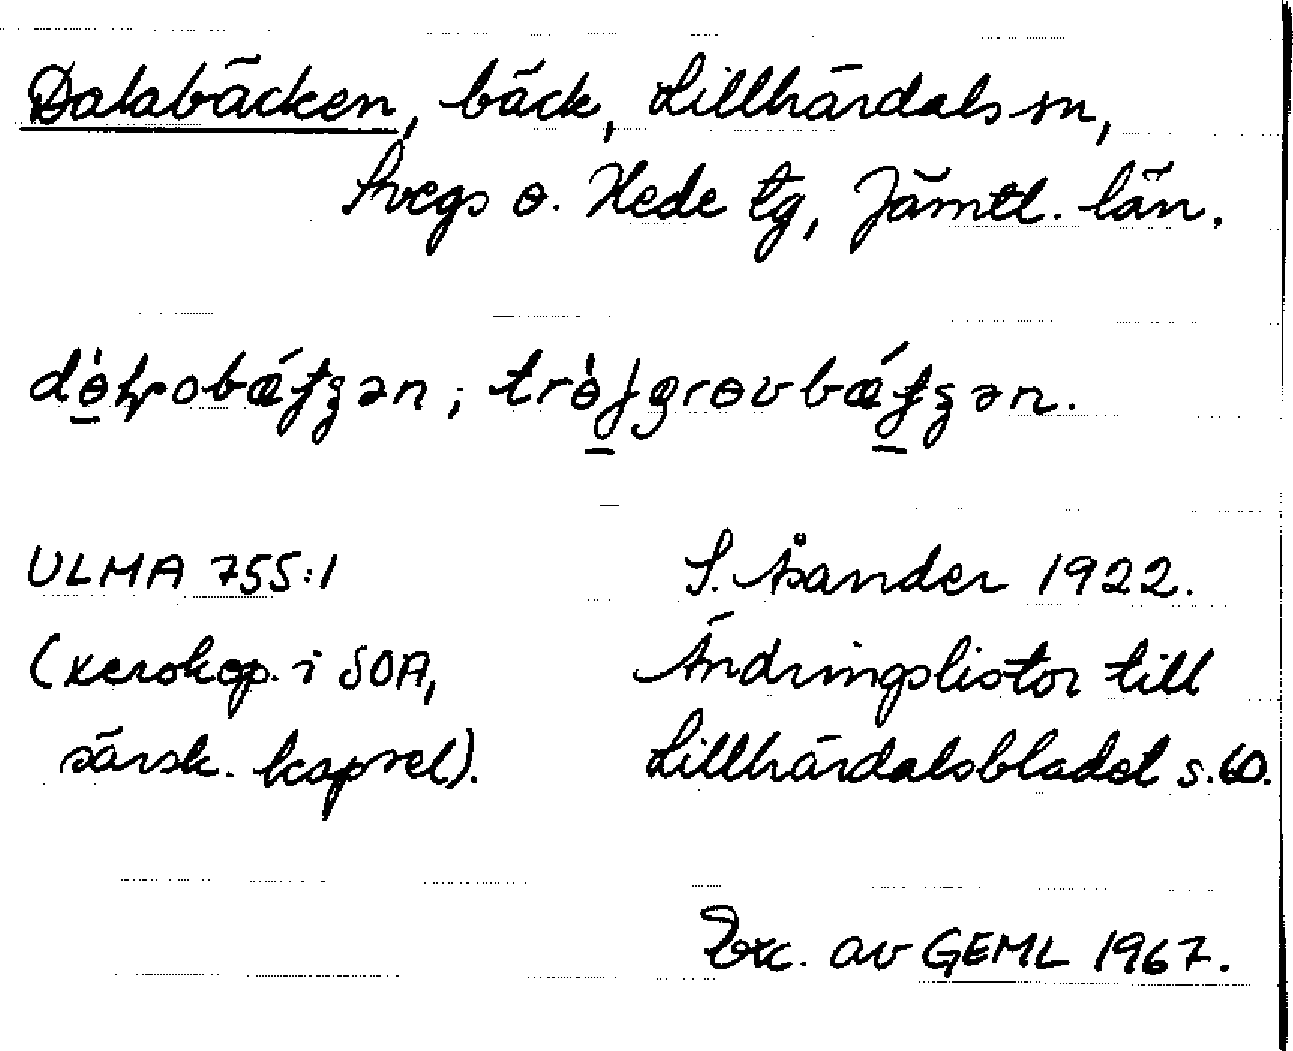 Dalabäcken, bäck, Lillhärdals sn,
Svegs o. Hede tg, Jämtl. län.
ULMA 755:1
S. Åsander 1922.
(xerokop. i SOA,
Ändringslistor till
särsk. kapsel).
Lillhärdalsbladet s. 60.
Exc. av GEML 1967.